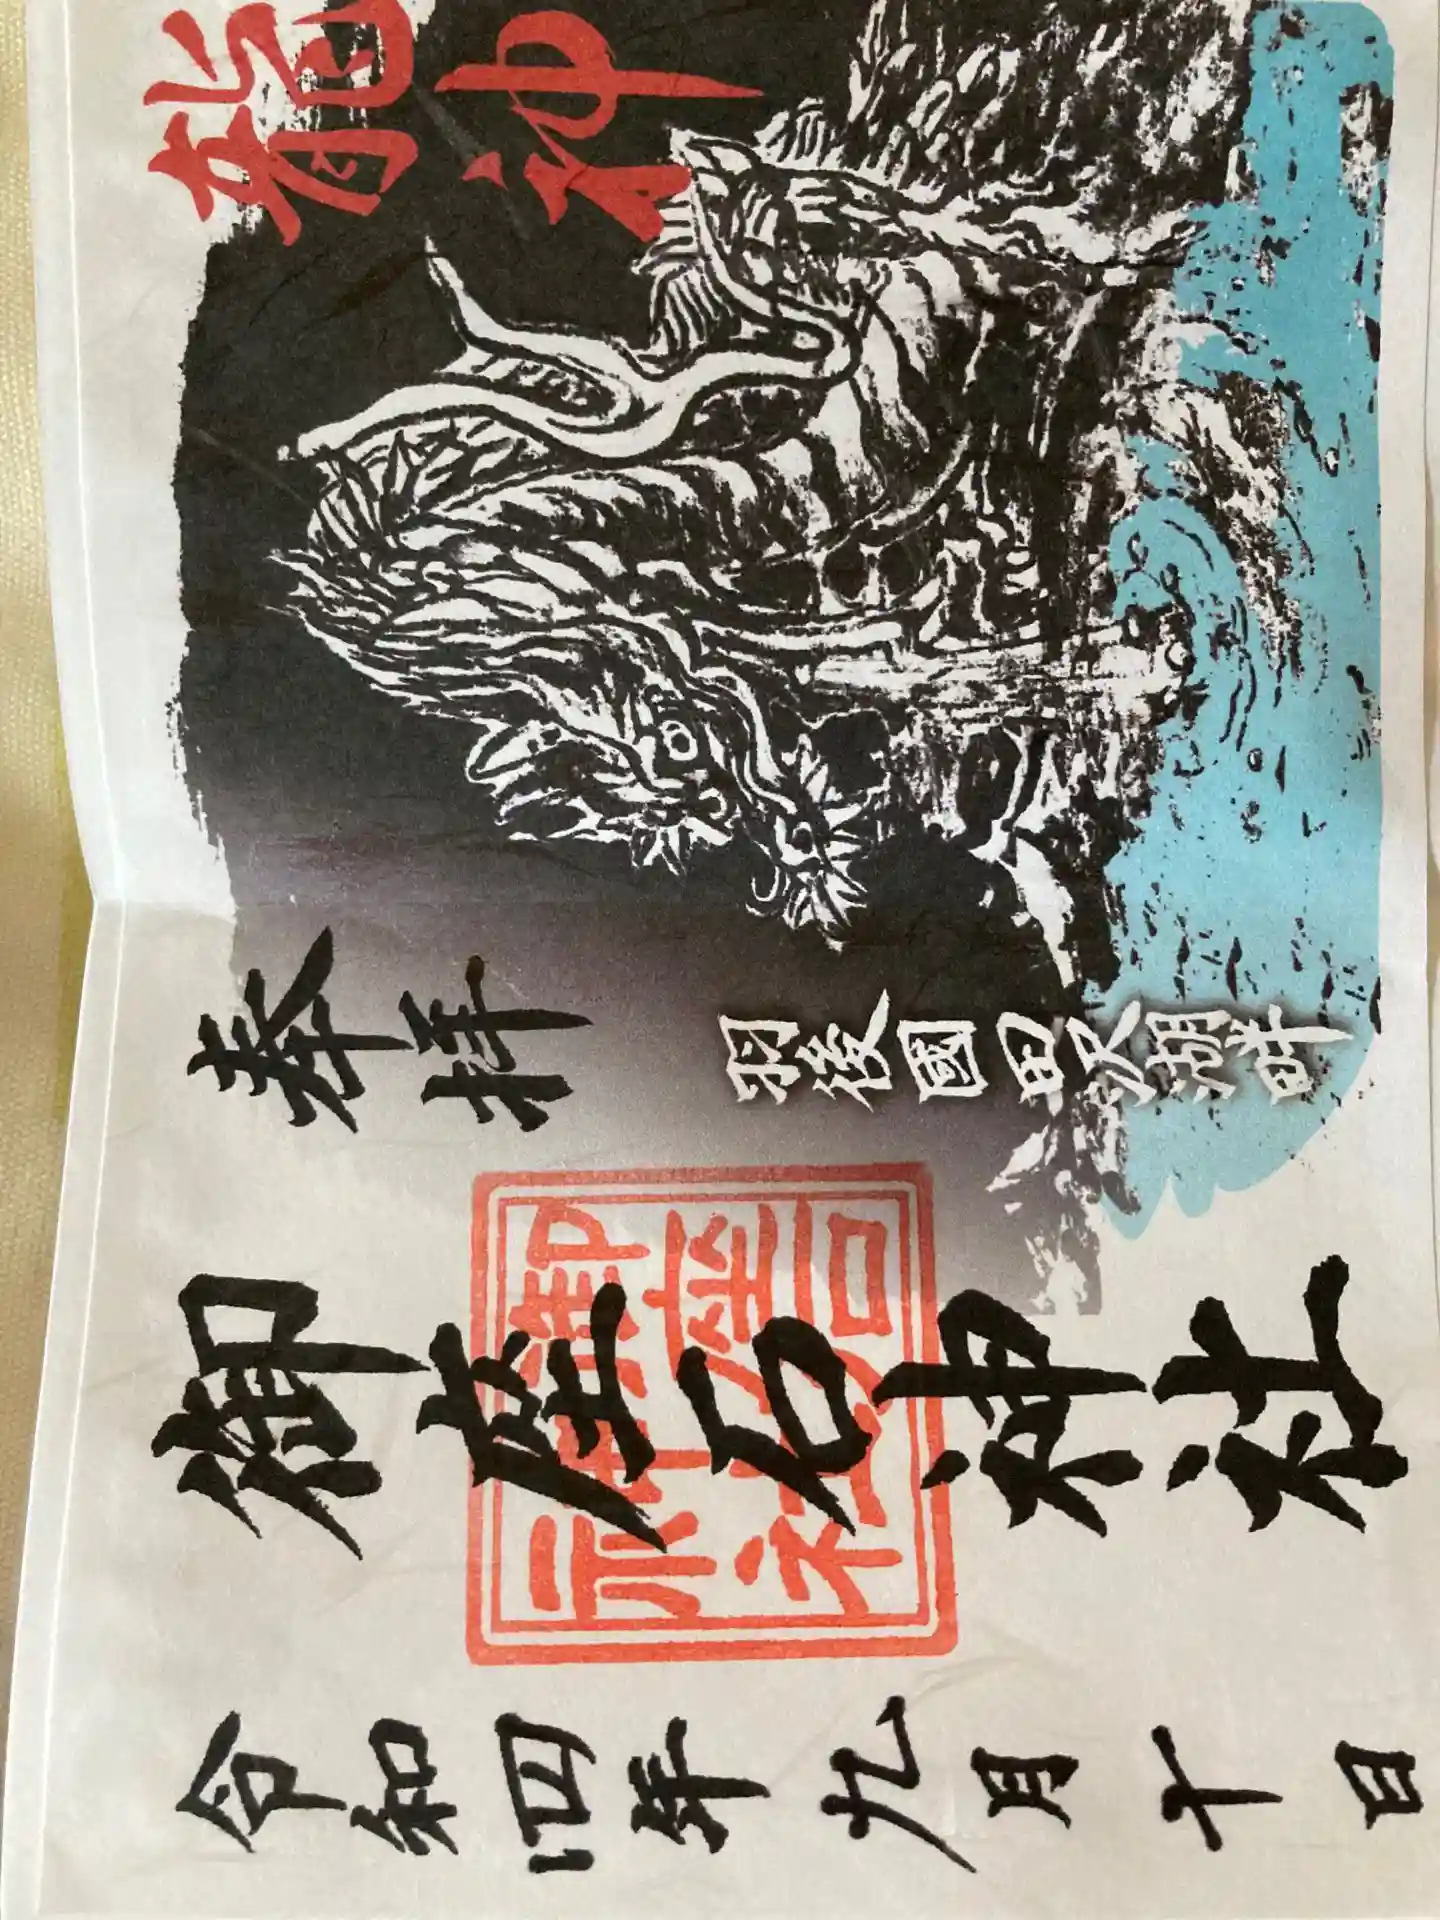 龍神
奉拝
羽後國田沢湖畔
御座石神社
御座石
神社
令和四年九月十日